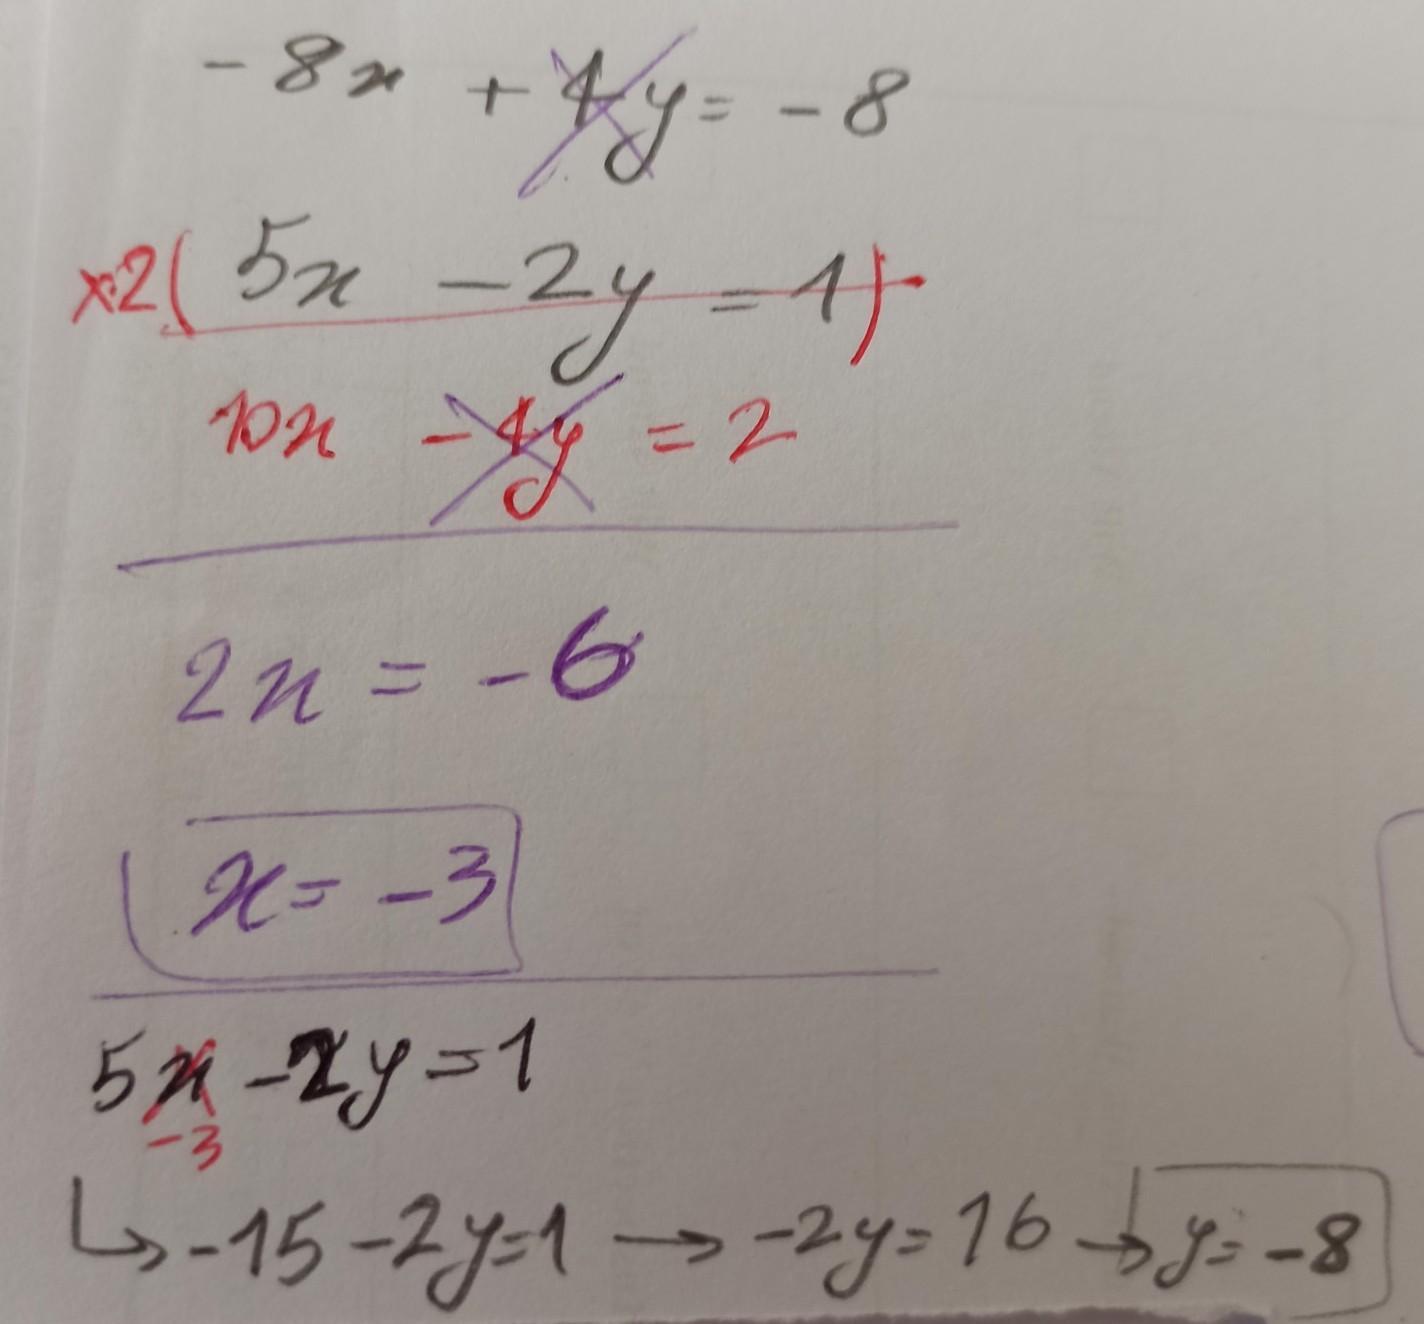 -8x + 4y = -8
×2( 5x - 2y = 1)
10x - 4y = 2
2x = -6
x = -3
5x - 2y = 1
-3
↳ -15 - 2y = 1 → -2y = 16 → y = -8